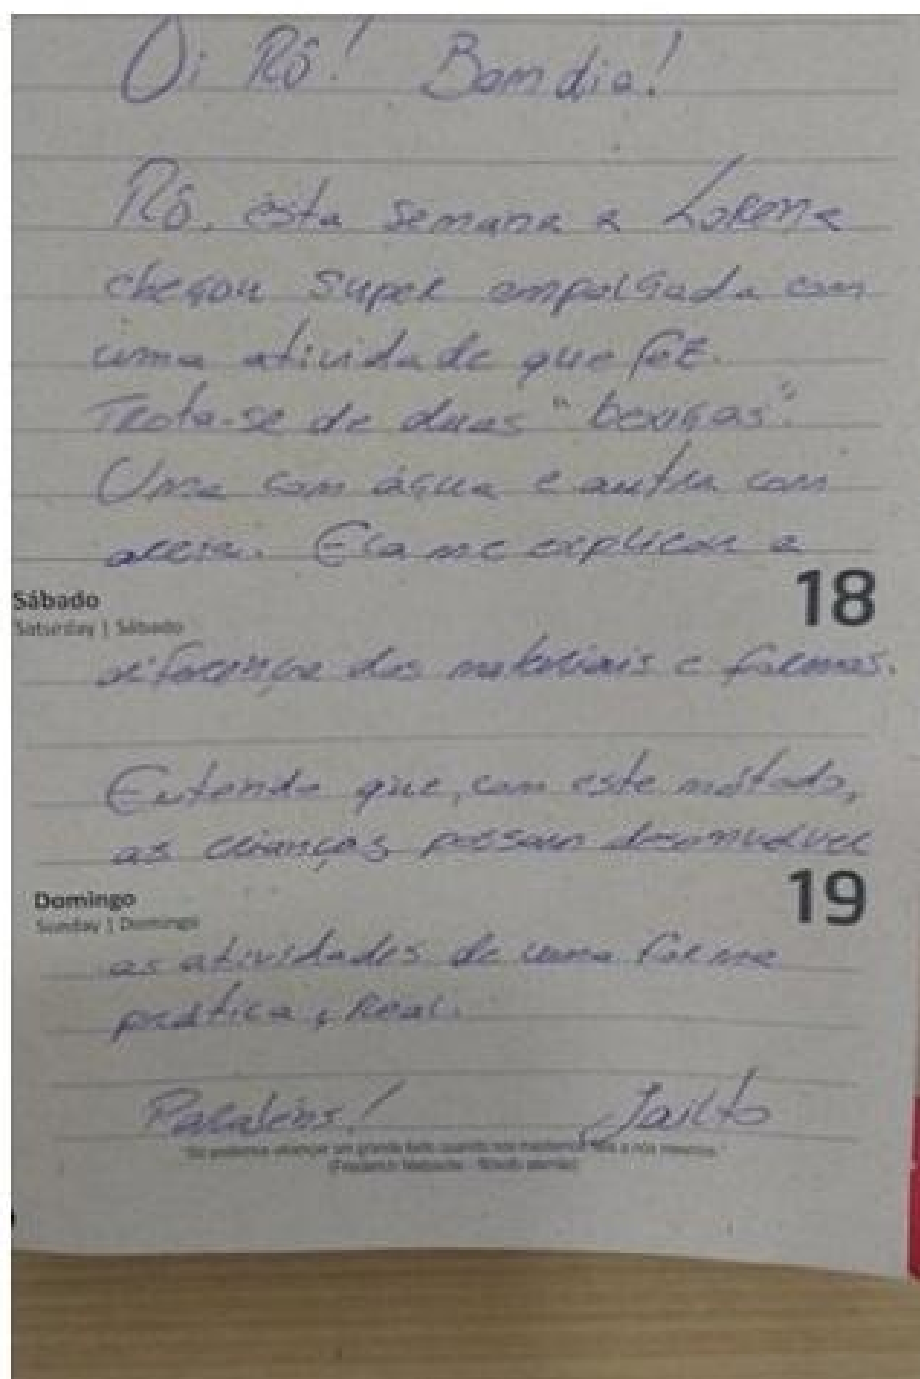 Oi Rô! Bom dia!
Rô, esta semana a Lorena
chegou super empolgada com
uma atividade que fez.
Trata-se de duas "bexigas".
Uma com água e outra com
areia. Ela me explicou a
Sábado
18
Saturday | Sábado
diferença dos materiais e formas.
Entendo que, com este método,
as crianças possam desenvolver
Domingo
19
Sunday | Domingo
as atividades de uma forma
prática e real.
Parabéns! Jailto
"Só podemos alcançar um grande êxito quando nos mantemos fiéis a nós mesmos."
(Friedrich Nietzsche - filósofo alemão)